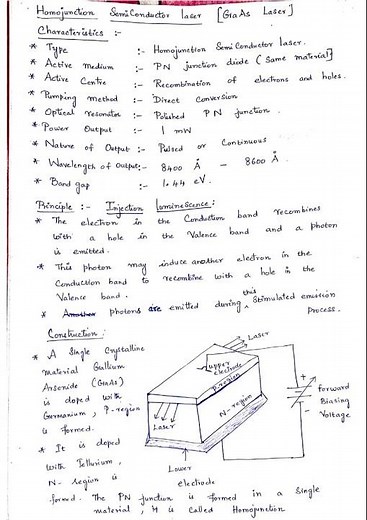 Homojunction SemiConductor laser [GaAs Laser]
Characteristics :-
* Type :- Homojunction SemiConductor laser.
* Active Medium :- PN junction diode (Same material)
* Active Centre :- Recombination of electrons and holes.
* Pumping method :- Direct Conversion
* Optical resonator :- Polished PN junction.
* Power Output :- 1 mW
* Nature of Output :- Pulsed or Continuous
* Wavelength of Output :- 8400 Å - 8600 Å.
* Band gap :- 1.44 eV.
Principle :- Injection luminescence :
* The electron in the Conduction band recombines
with a hole in the Valence band and a photon
is emitted.
* This photon may induce another electron in the
Conduction band to recombine with a hole in the
Valence band.
* Another photons are emitted during this Stimulated emission
process.
Construction :
* A Single Crystalline
material Gallium
Arsenide (GaAs)
is doped with
Germanium, P-region
is formed.
* It is doped
with Tellurium,
N-region is
formed. The PN junction is formed in a Single
material, it is Called Homojunction
Laser
upper
electrode
P-region
N-region
Laser
Lower
electrode
+
-
forward
Biasing
Voltage